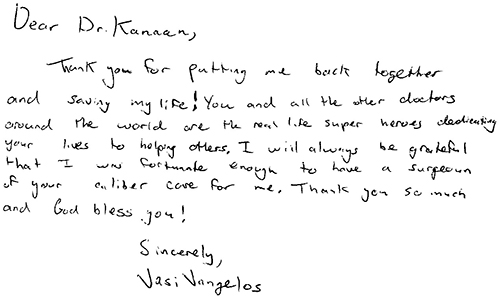 Dear Dr. Kanaan,
Thank you for putting me back together
and saving my life! You and all the other doctors
around the world are the real life super heroes dedicating
your lives to helping others. I will always be grateful
that I was fortunate enough to have a surgeon
of your caliber care for me. Thank you so much
and God bless you!
Sincerely,
Vasi Vangelos